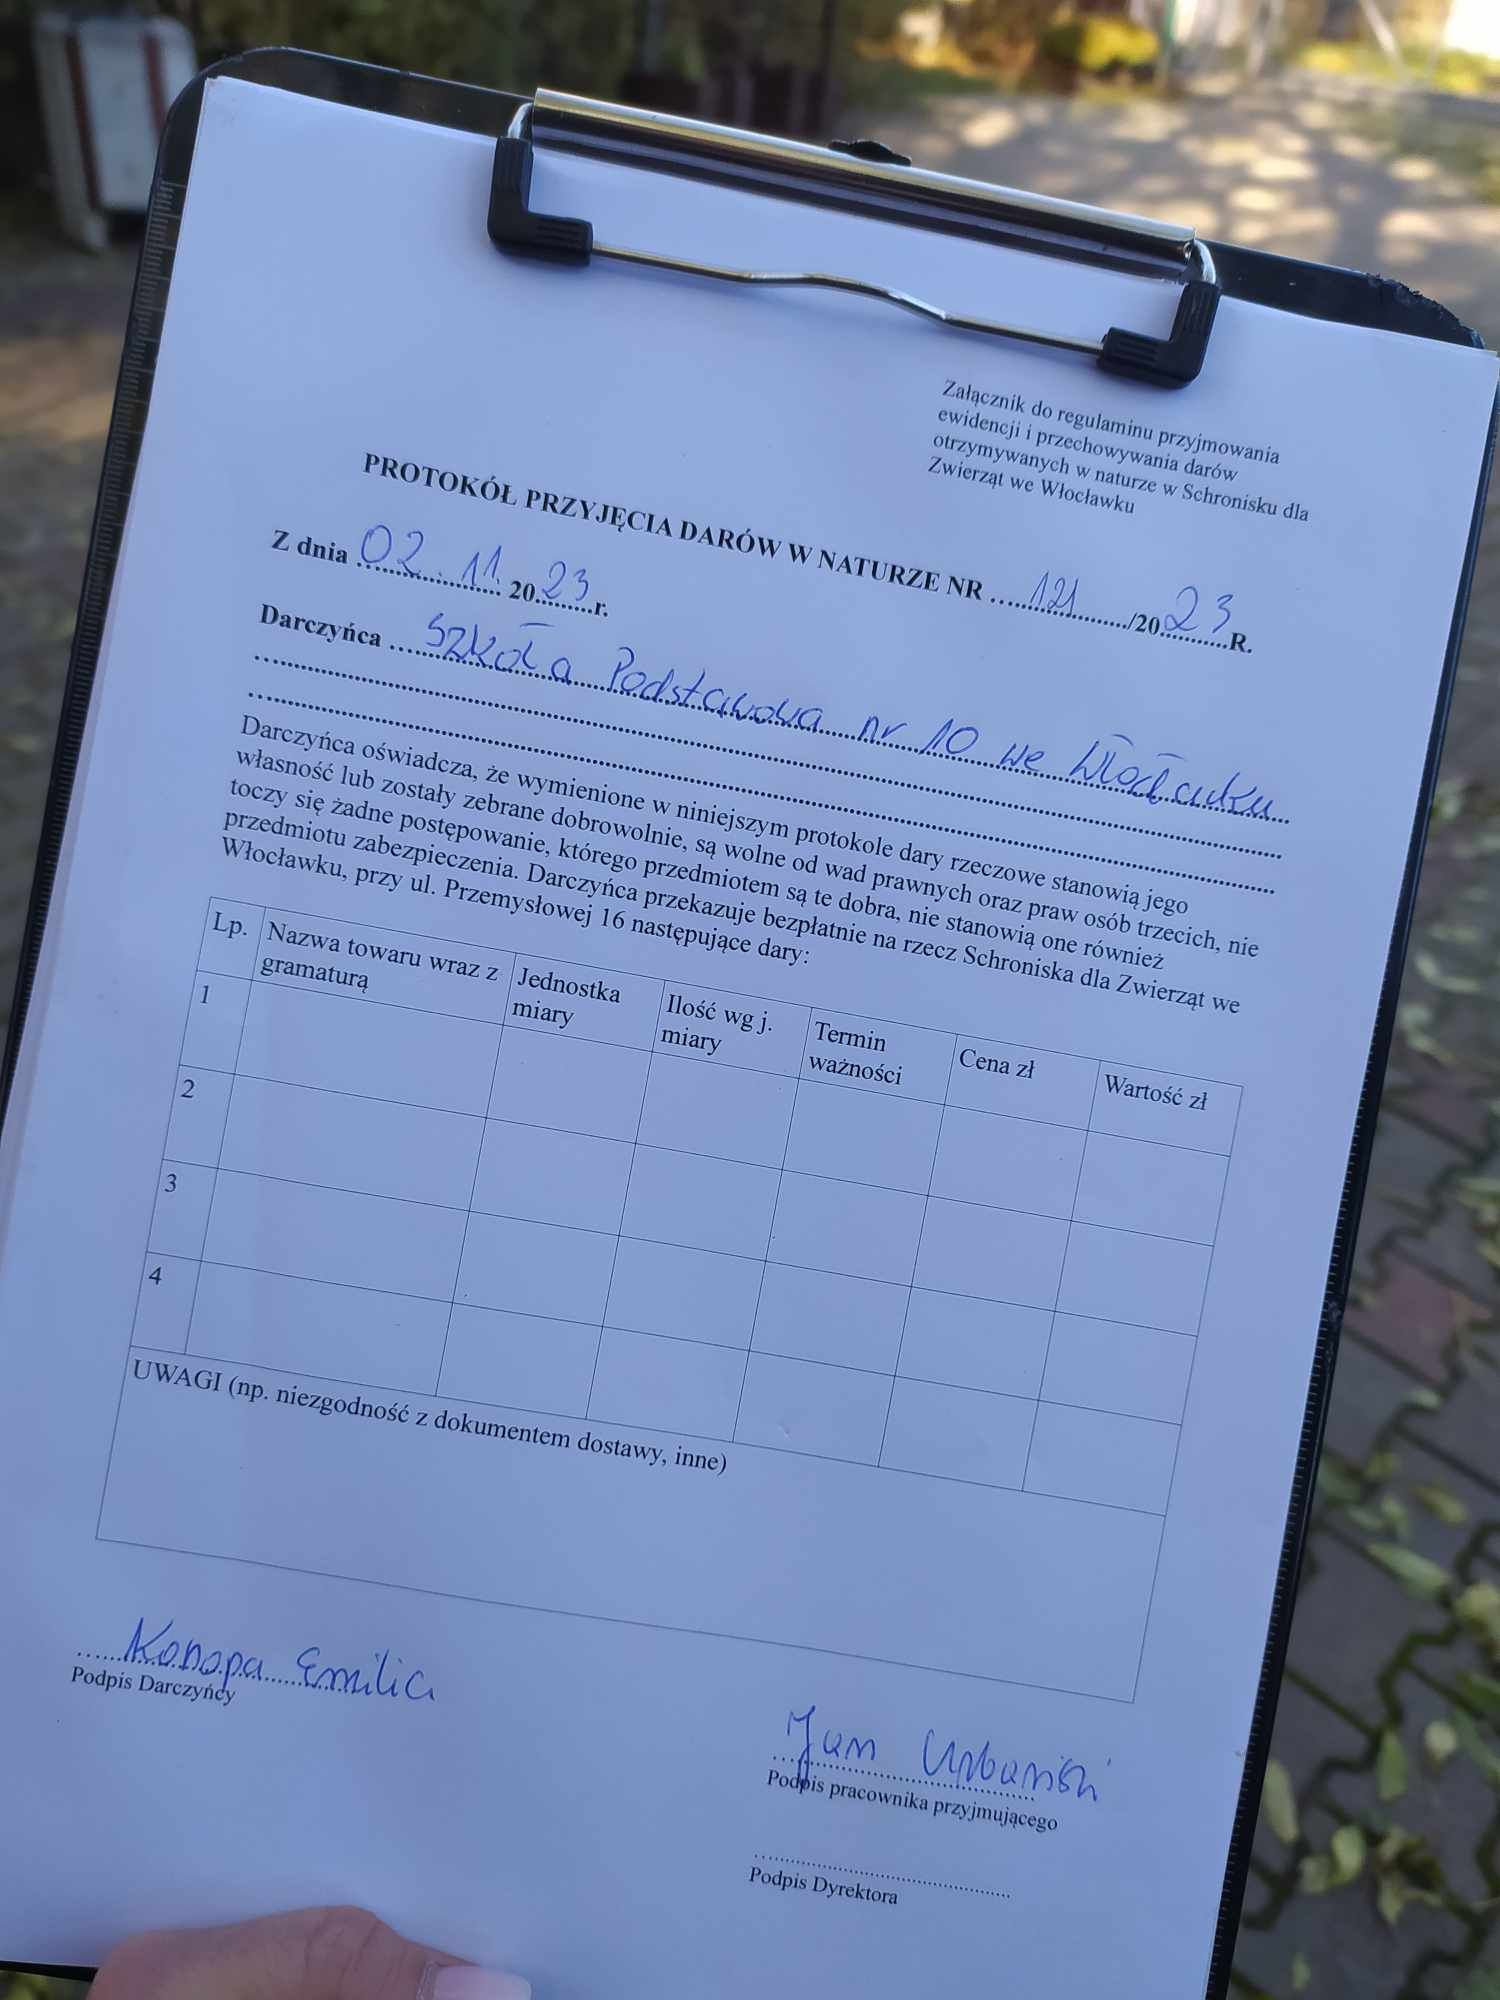 Załącznik do regulaminu przyjmowania
ewidencji i przechowywania darów
otrzymywanych w naturze w Schronisku dla
Zwierząt we Włocławku
PROTOKÓŁ PRZYJĘCIA DARÓW W NATURZE NR ....121....../2023.R.
Z dnia 02.11. 2023.r.
Darczyńca Szkoła Podstawowa nr 10 we Włocławku
Darczyńca oświadcza, że wymienione w niniejszym protokole dary rzeczowe stanowią jego
własność lub zostały zebrane dobrowolnie, są wolne od wad prawnych oraz praw osób trzecich, nie
toczy się żadne postępowanie, którego przedmiotem są te dobra, nie stanowią one również
przedmiotu zabezpieczenia. Darczyńca przekazuje bezpłatnie na rzecz Schroniska dla Zwierząt we
Włocławku, przy ul. Przemysłowej 16 następujące dary:
Lp. Nazwa towaru wraz z gramaturą Jednostka miary Ilość wg j. miary Termin ważności Cena zł Wartość zł
1
2
3
4
UWAGI (np. niezgodność z dokumentem dostawy, inne)
Konopa Emilia
Podpis Darczyńcy
Jan Urbański
Podpis pracownika przyjmującego
Podpis Dyrektora